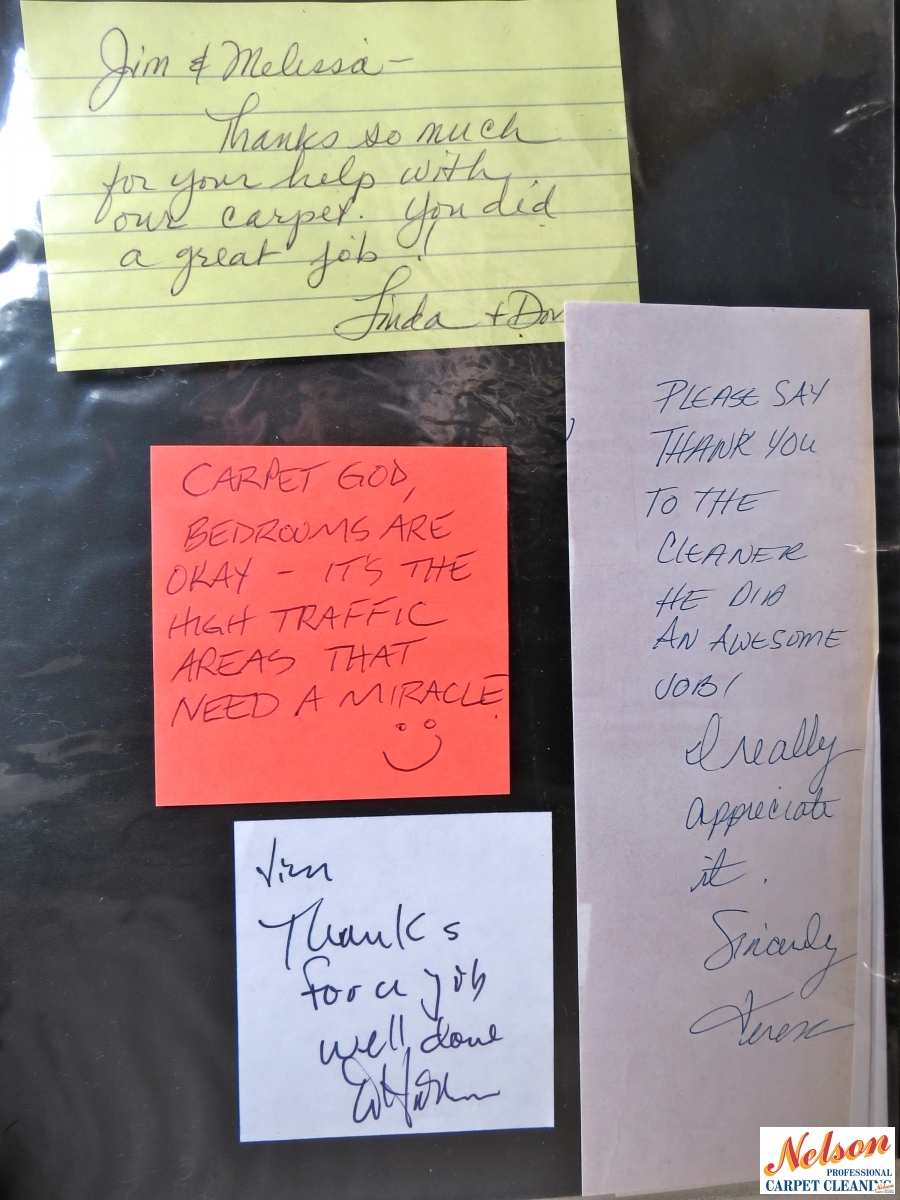 Jim & Melissa -
Thanks so much
for your help with
our carpet. You did
a great job!
Linda + Don
CARPET GOD,
BEDROOMS ARE
OKAY - IT'S THE
HIGH TRAFFIC
AREAS THAT
NEED A MIRACLE
PLEASE SAY
THANK YOU
TO THE
CLEANER
HE DID
AN AWESOME
JOB!
I really
appreciate
it.
Sincerely
Teresa
Jim
Thanks
for a job
well done
Nelson
PROFESSIONAL
CARPET CLEANING